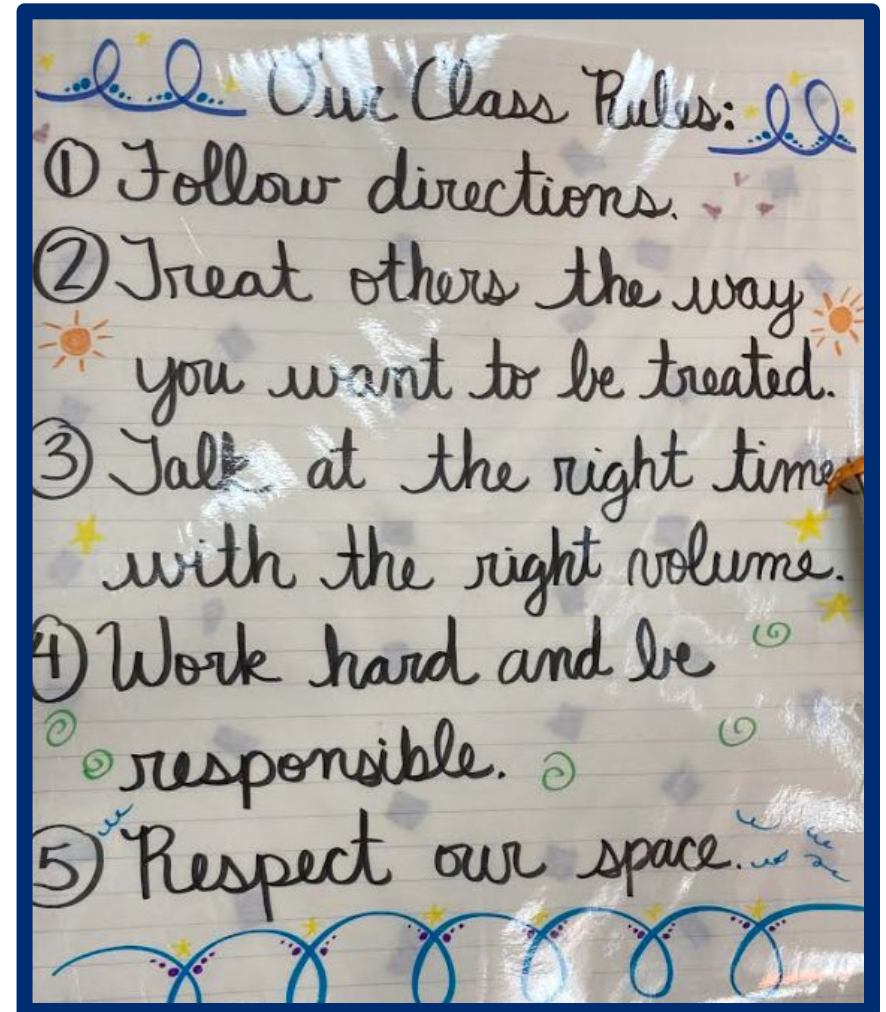 Our Class Rules:
① Follow directions.
② Treat others the way
you want to be treated.
③ Talk at the right time
with the right volume.
④ Work hard and be
responsible.
⑤ Respect our space.